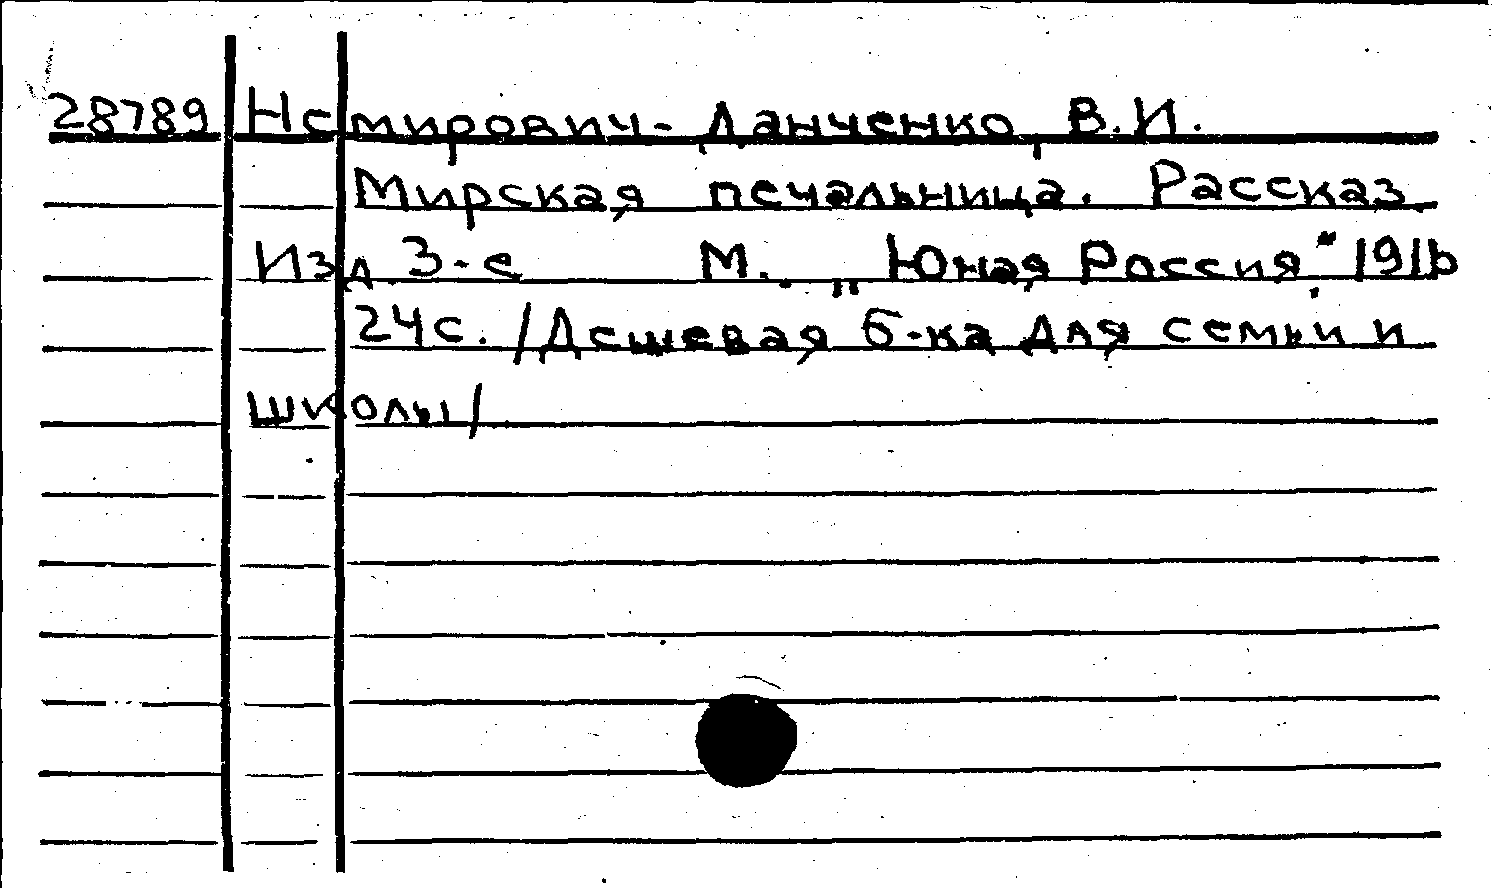 28789 Немирович-Данченко, В.И.
Мирская печальница. Рассказ
Изд. 3-е М., „Юная Россия", 1916
24 с. /Дешевая б-ка для семьи и
школы/